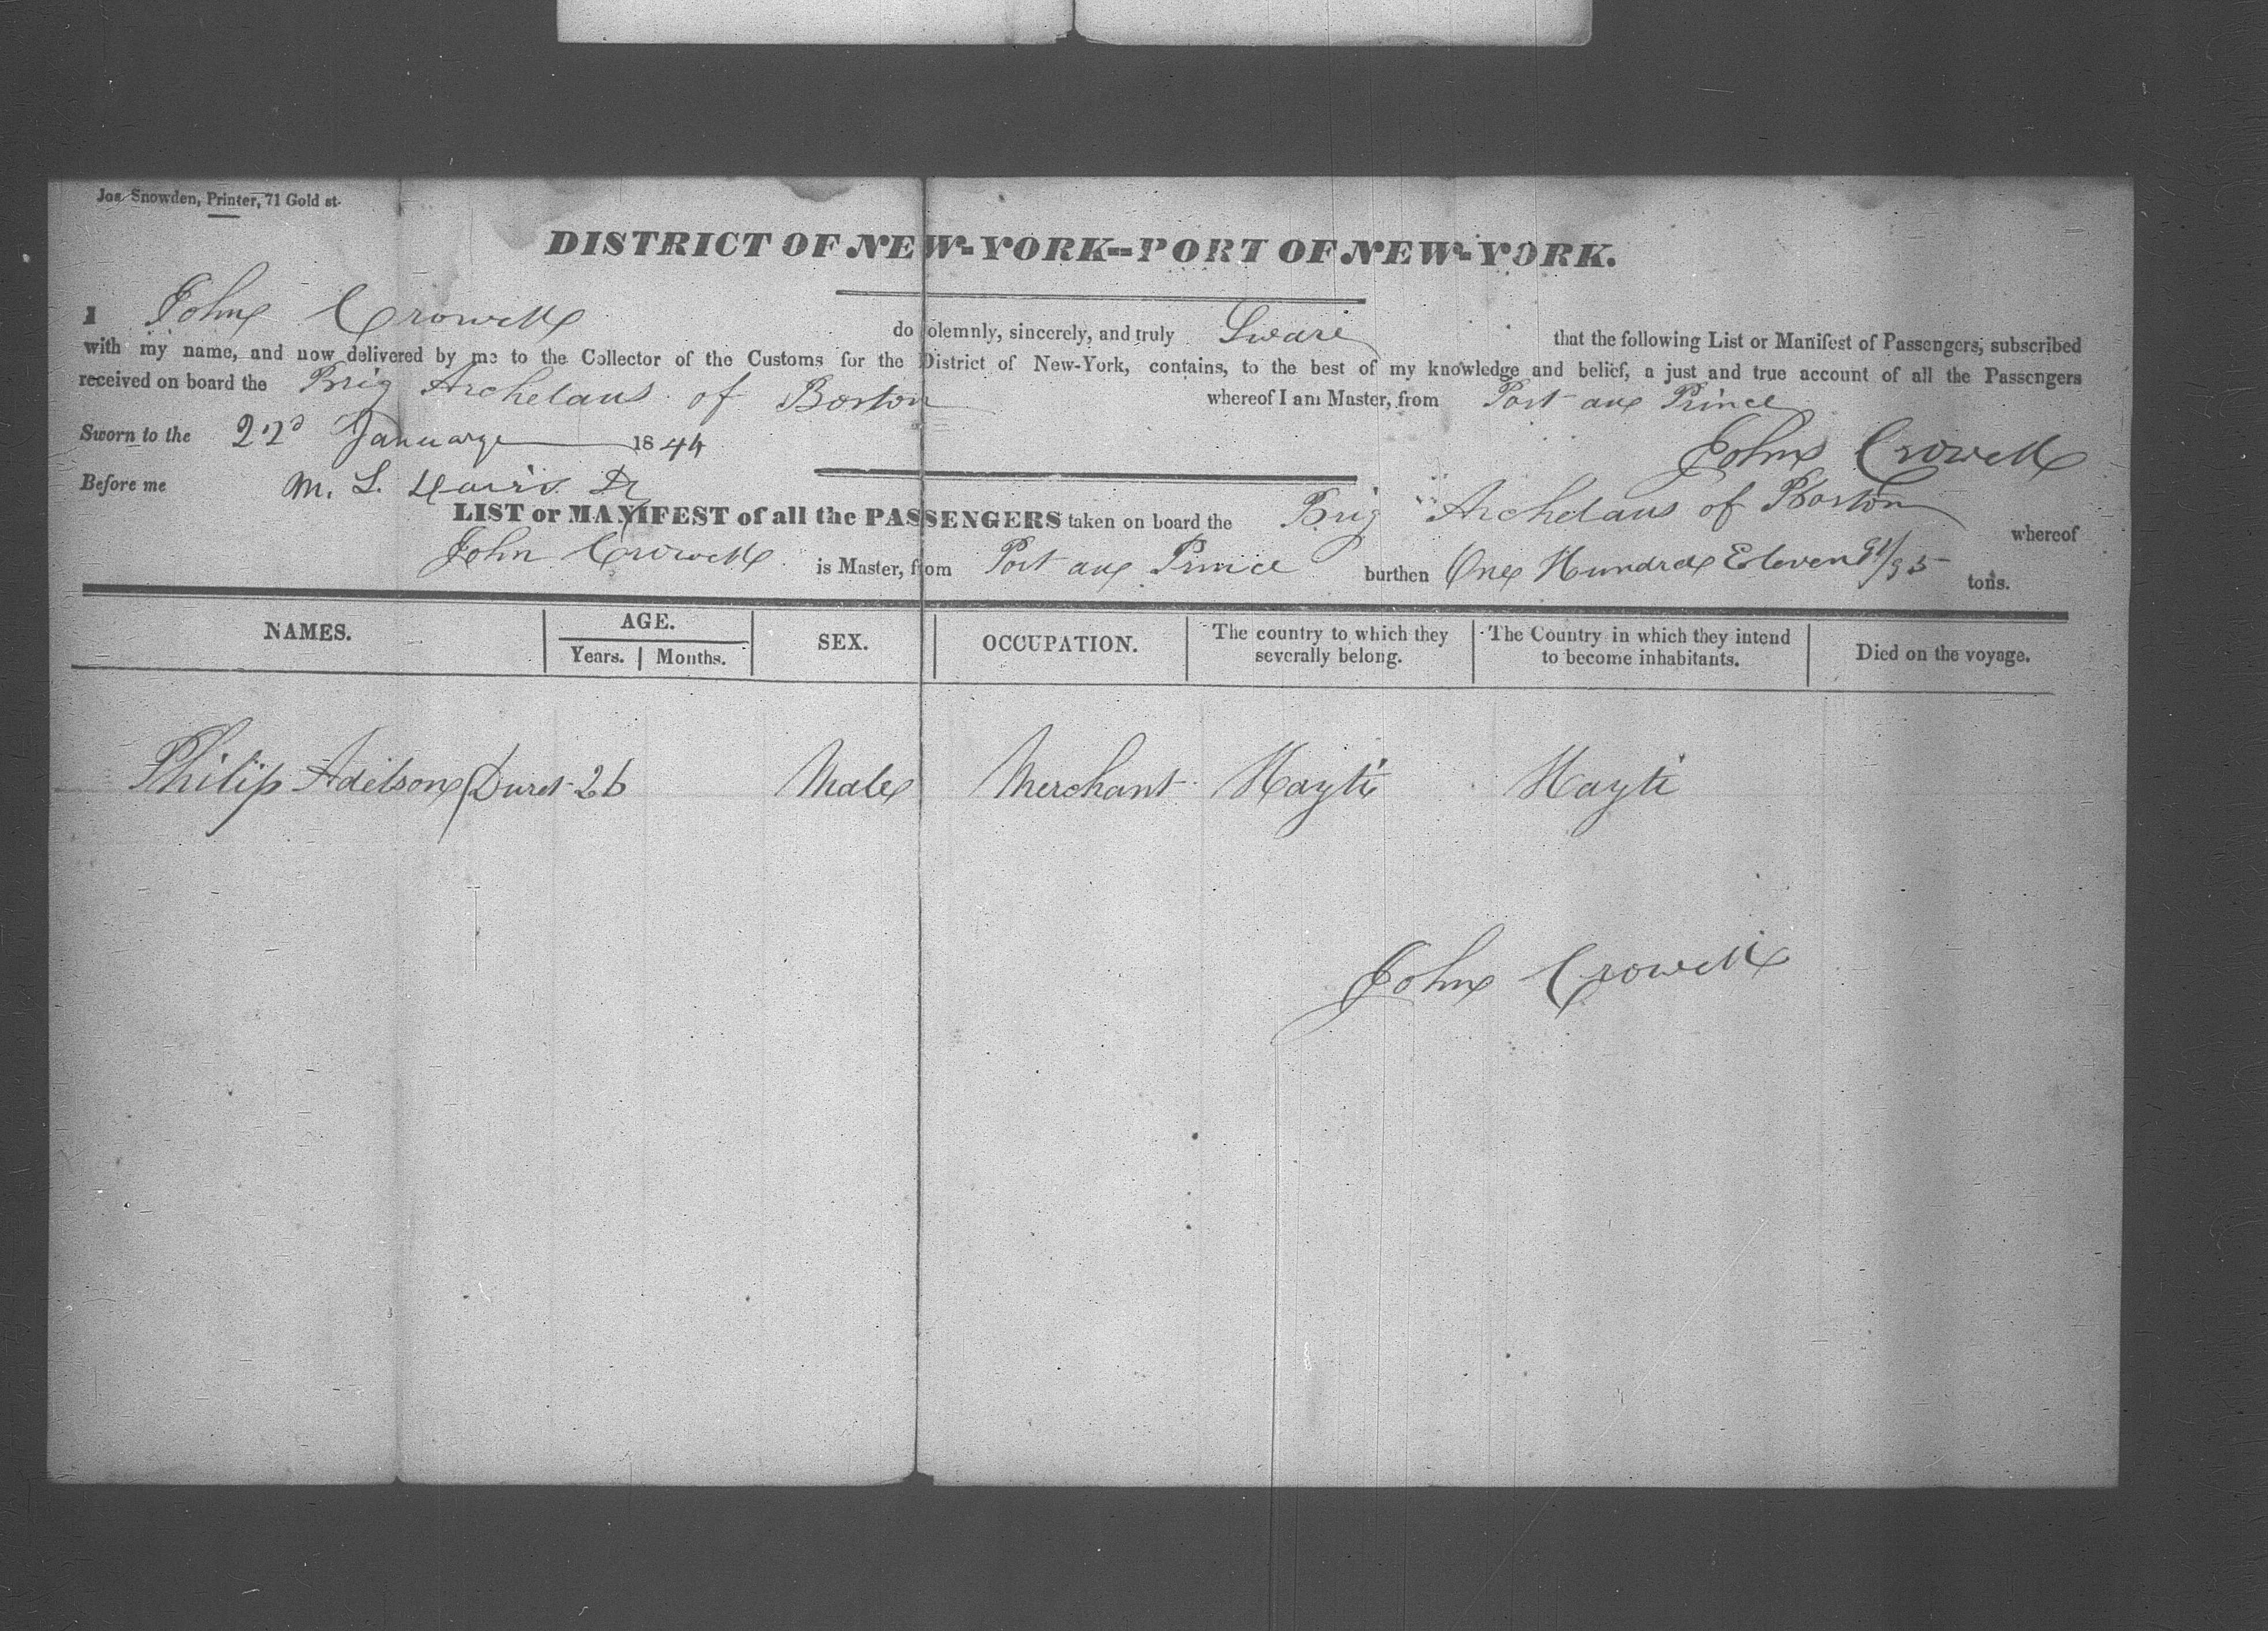 Jos Snowden, Printer, 71 Gold st.
DISTRICT OF NEW-YORK--PORT OF NEW-YORK.
I John Crowell do solemnly, sincerely, and truly Sware that the following List or Manifest of Passengers, subscribed
with my name, and now delivered by me to the Collector of the Customs for the District of New-York, contains, to the best of my knowledge and belief, a just and true account of all the Passengers
received on board the Brig Archelaus of Boston whereof I am Master, from Port aux Prince
Sworn to the 22d January 1844
John Crowell
Before me M. L. Davis
LIST or MANIFEST of all the PASSENGERS taken on board the Brig Archelaus of Boston whereof
John Crowell is Master, from Port aux Prince burthen One Hundred Eleven 91/95 tons.
NAMES. AGE. SEX. OCCUPATION. The country to which they severally belong. The Country in which they intend to become inhabitants. Died on the voyage.
Years. Months.
Philip Adelson Duret 26 Male Merchant Hayti Hayti
John Crowell